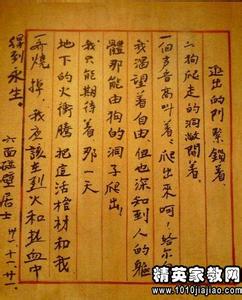 出的門緊鎖着
狗爬走的洞敞開着
一個聲音高叫着：爬出來呵，給尔
我渴望着自由，但也深知到人的軀
體那能由狗的洞子爬出！
我只能期待着那一天
地下的火衝騰把這活棺材和我
一齊燒掉，我應該在烈火和热血中
得到永生。
六面碰壁居士
卅一．十一．廿一
精英家教网
www.1010jiajiao.com